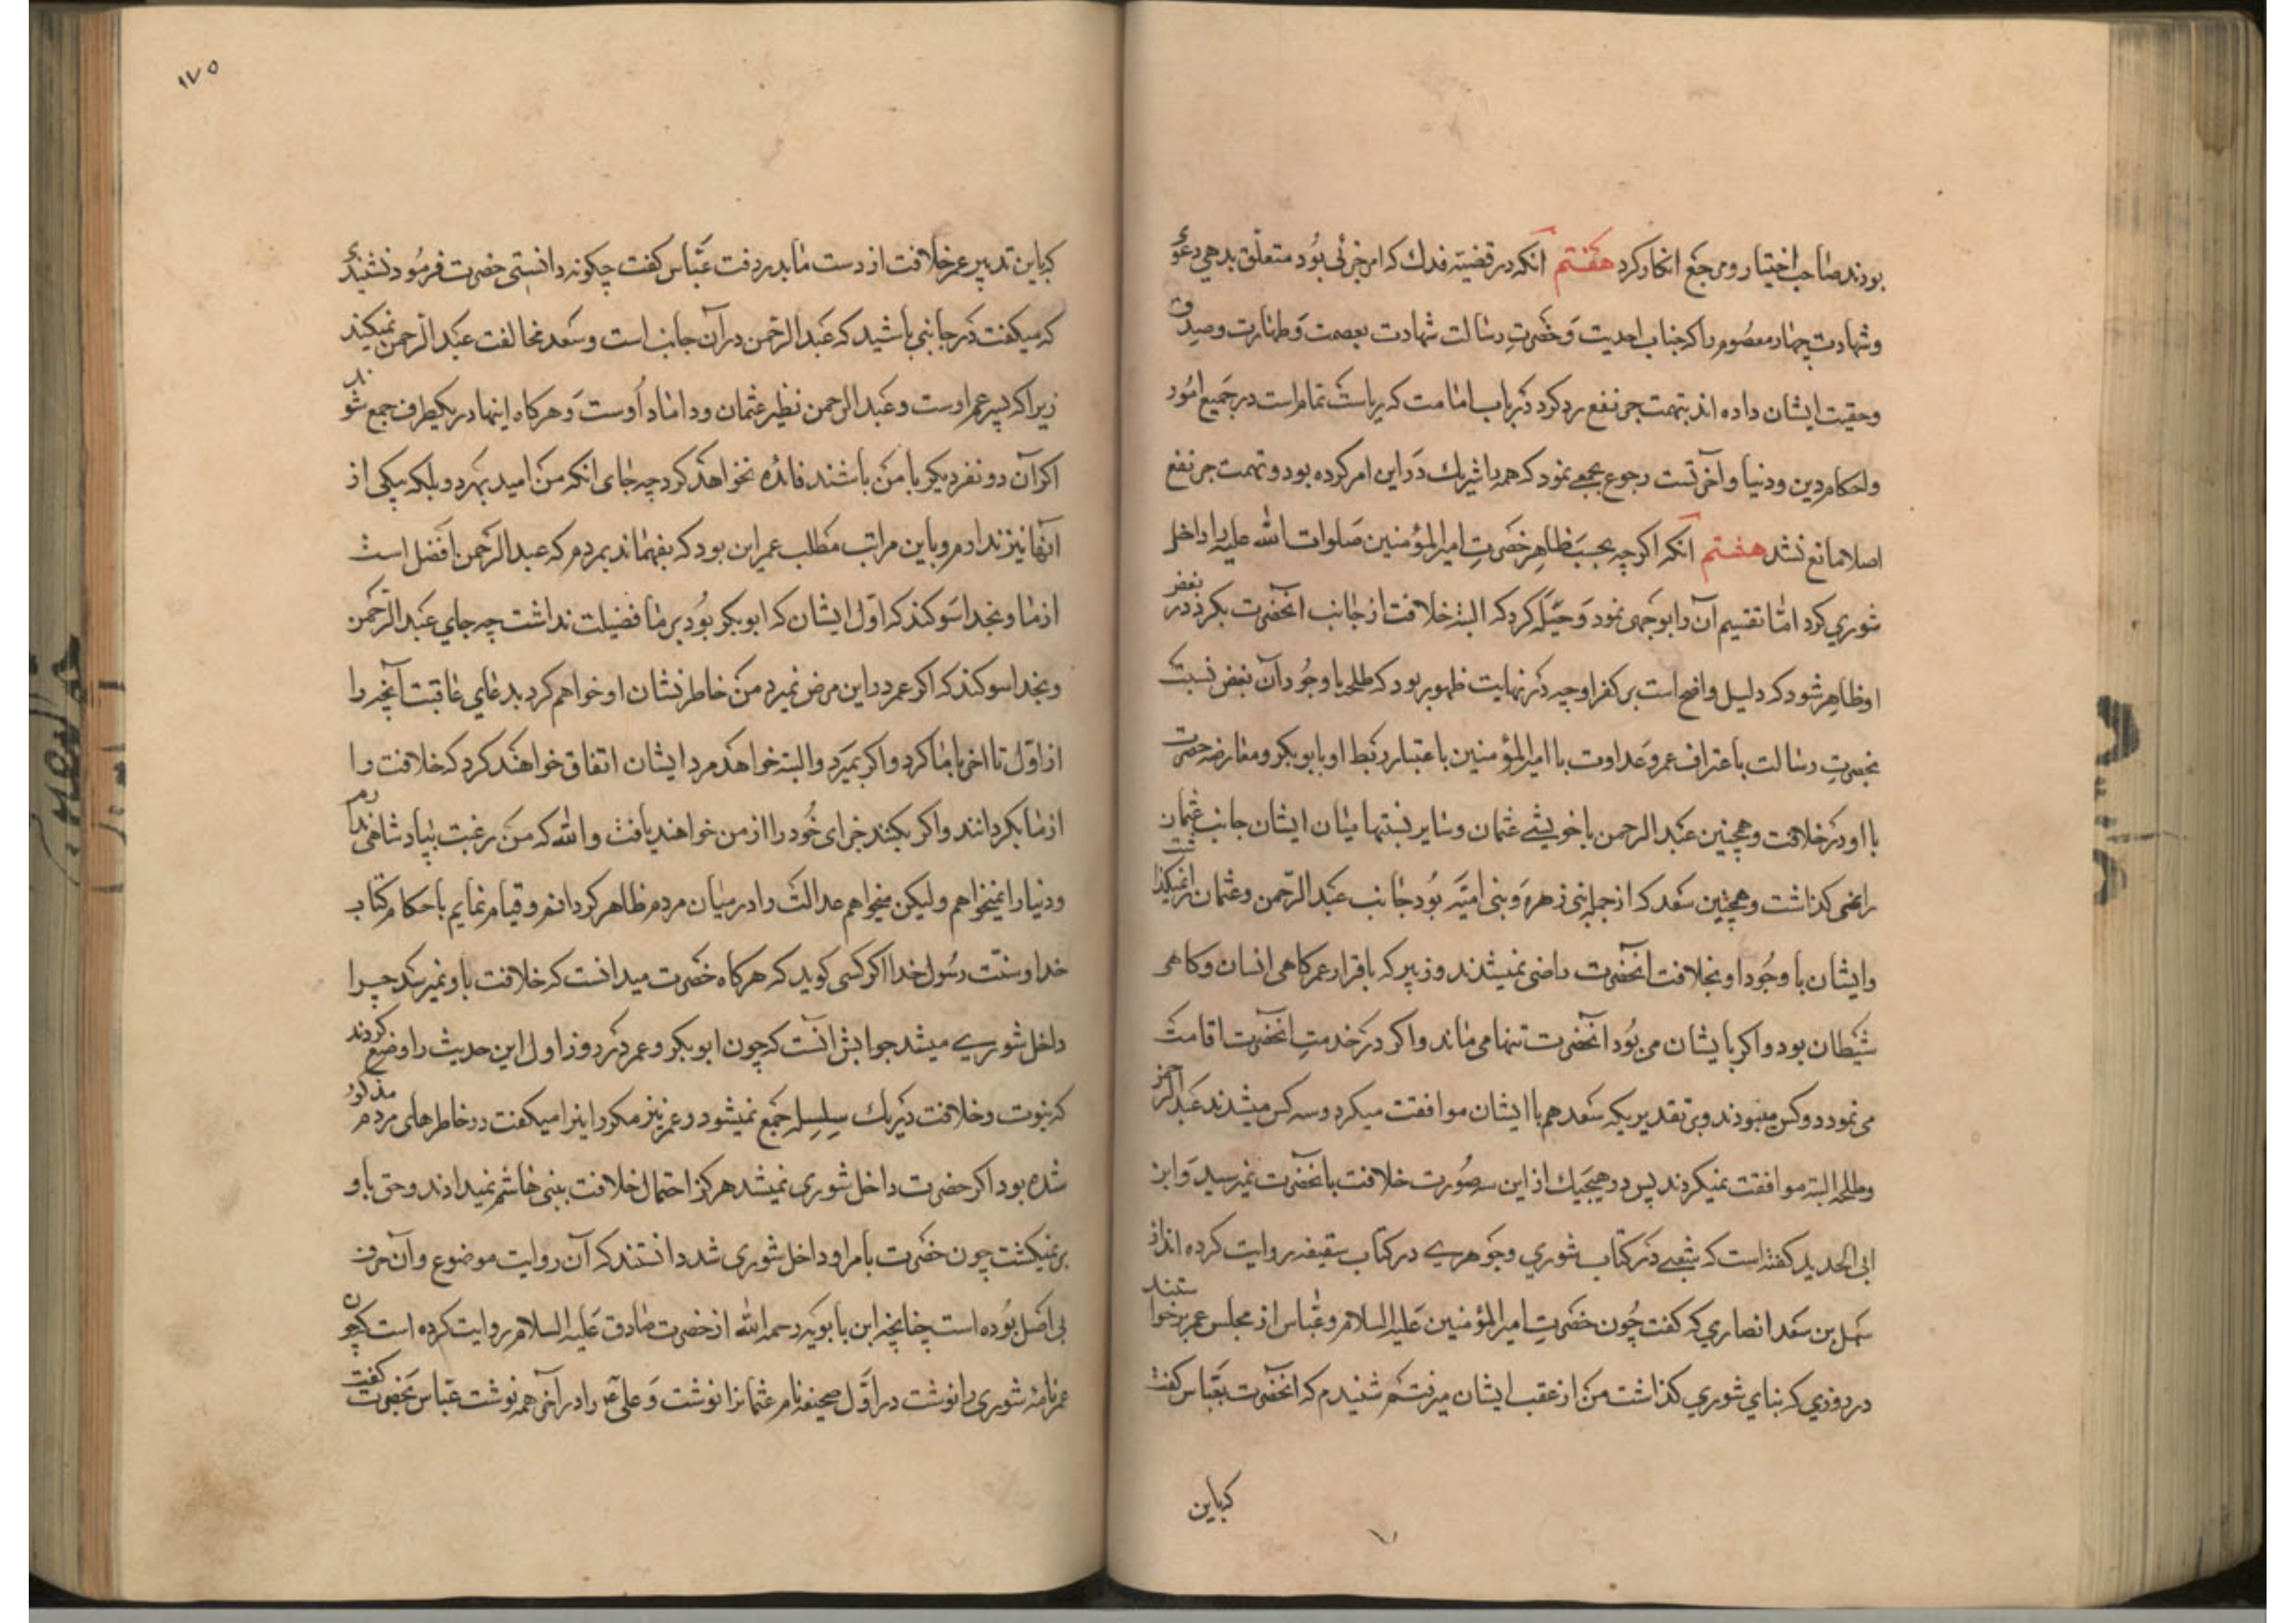 بودند صاحب اختیار و مرجع انکار کرد هفتم آنکه در قضیه فدك که امر جزئی بود متعلق بدهی دعوی
و شهادت چهار معصوم را که جناب احدیت و حضرت رسالت شهادت بعصمت و طهارت و صدق
و حقیت ایشان داده اند بتهمت جر نفع رد کرد در باب امامت که ریاست تمام است در جمیع امور
و احکام دین و دنیا و آخرتست رجوع بجمعی نمود که همه را شریك در این امر کرده بود و تهمت جر نفع
اصلا مانع نشد هشتم آنکه اکرچه بحسب ظاهر حضرت امیر المؤمنین صلوات الله علیه را داخل
شوری کرد اما تقسیم آن را بوجهی نمود و حیله کرد که البته خلافت از جانب آنحضرت بکردد و بغض
او ظاهر شود که دلیل واضح است بر کفر او چه در نهایت ظهور بود که طلحه با وجود آن بغض نسبت
بحضرت رسالت باعتراف عمر و عداوت با امیر المؤمنین باعتبار ربط او بابوبکر و معارضه حضرت
با او در خلافت و همچنین عبد الرحمن با خویشی عثمان و سایر نسبتها میان ایشان جانب عثمان
را نمی کذاشت و همچنین سعد که از جمله بنی زهره و بنی امیه بود جانب عبد الرحمن و عثمان را نمیکذاشت
و ایشان با وجود او بخلافت آنحضرت راضی نمیشدند و زبیر که باقرار عمر کاهی انسان و کاهی
شیطان بود و اکر با ایشان می بود آنحضرت تنها می ماند و اکر در خدمت آنحضرت اقامت
می نمود دو کس میبودند و بر تقدیری که سعد هم با ایشان موافقت میکرد و سه کس میشدند عبد الرحمن
و طلحه البته موافقت نمیکردند پس در هیچیك از این سه صورت خلافت بآنحضرت نمیرسید و ابن
ابی الحدید کفته است که شعبی در کتاب شوری و جوهری در کتاب سقیفه روایت کرده اند از
سهل بن سعد انصاری که کفت چون حضرت امیر المؤمنین علیه السلام و عباس از مجلس عمر برخواستند
در روزی که بنای شوری کذاشت من از عقب ایشان میرفتم شنیدم که آنحضرت بعباس کفت
که باین
۱۷۵
که باین تدبیر عمر خلافت از دست ما بدر رفت عباس کفت چکونه دانستی حضرت فرمود نشنیدی
که میکفت در جانبی باشید که عبد الرحمن در آن جانب است و سعد مخالفت عبد الرحمن نمیکند
زیرا که پسر عم اوست و عبد الرحمن نظیر عثمان و داماد اوست و هرکاه اینها در یکطرف جمع شوند
اکر آن دو نفر دیکر با من باشند فائده نخواهد کرد چه جای آنکه من امید بهردو بلکه بیکی از
آنها نیز ندارم و باین مراتب مطلب عمر این بود که بفهماند بمردم که عبد الرحمن افضل است
از ما و بخدا سوکند که اول ایشان که ابوبکر بود بر ما فضیلت نداشت چه جای عبد الرحمن
و بخدا سوکند که اکر عمر در این مرض نمیرد من خاطر نشان او خواهم کرد بدعای عاقبت آنچه را
از اول تا آخر با ما کرد و اکر بمیرد و البته خواهد مرد ایشان اتفاق خواهند کرد که خلافت را
از ما بکردانند و اکر بکنند جزای خود را از من خواهند یافت و الله که من رغبت بپادشاهی ندارم
و دنیا را نمیخواهم و لیکن میخواهم عدالت را در میان مردم ظاهر کردانم و قیام نمایم باحکام کتاب
خدا و سنت رسول خدا اکر کسی کوید که هرکاه حضرت میدانست که خلافت باو نمیرسد چرا
داخل شوری میشد جوابش آنست که چون ابوبکر و عمر در روز اول این حدیث را وضع کردند
که نبوت و خلافت در یك سلسله جمع نمیشود و عمر نیز مکرر اینرا میکفت در خاطرهای مردم مذکور
شده بود اکر حضرت داخل شوری نمیشد هرکز احتمال خلافت ببنی هاشم نمیدادند و حق باو
برنمیکشت چون حضرت بامر او داخل شوری شد دانستند که آن روایت موضوع و آن حرف
بی اصل بوده است چنانچه ابن بابویه رحمه الله از حضرت صادق علیه السلام روایت کرده است که چون
عمر نامه شوری را نوشت در اول صحیفه نام عثمانرا نوشت و علی ع را در آخر همه نوشت عباس بحضرت کفت